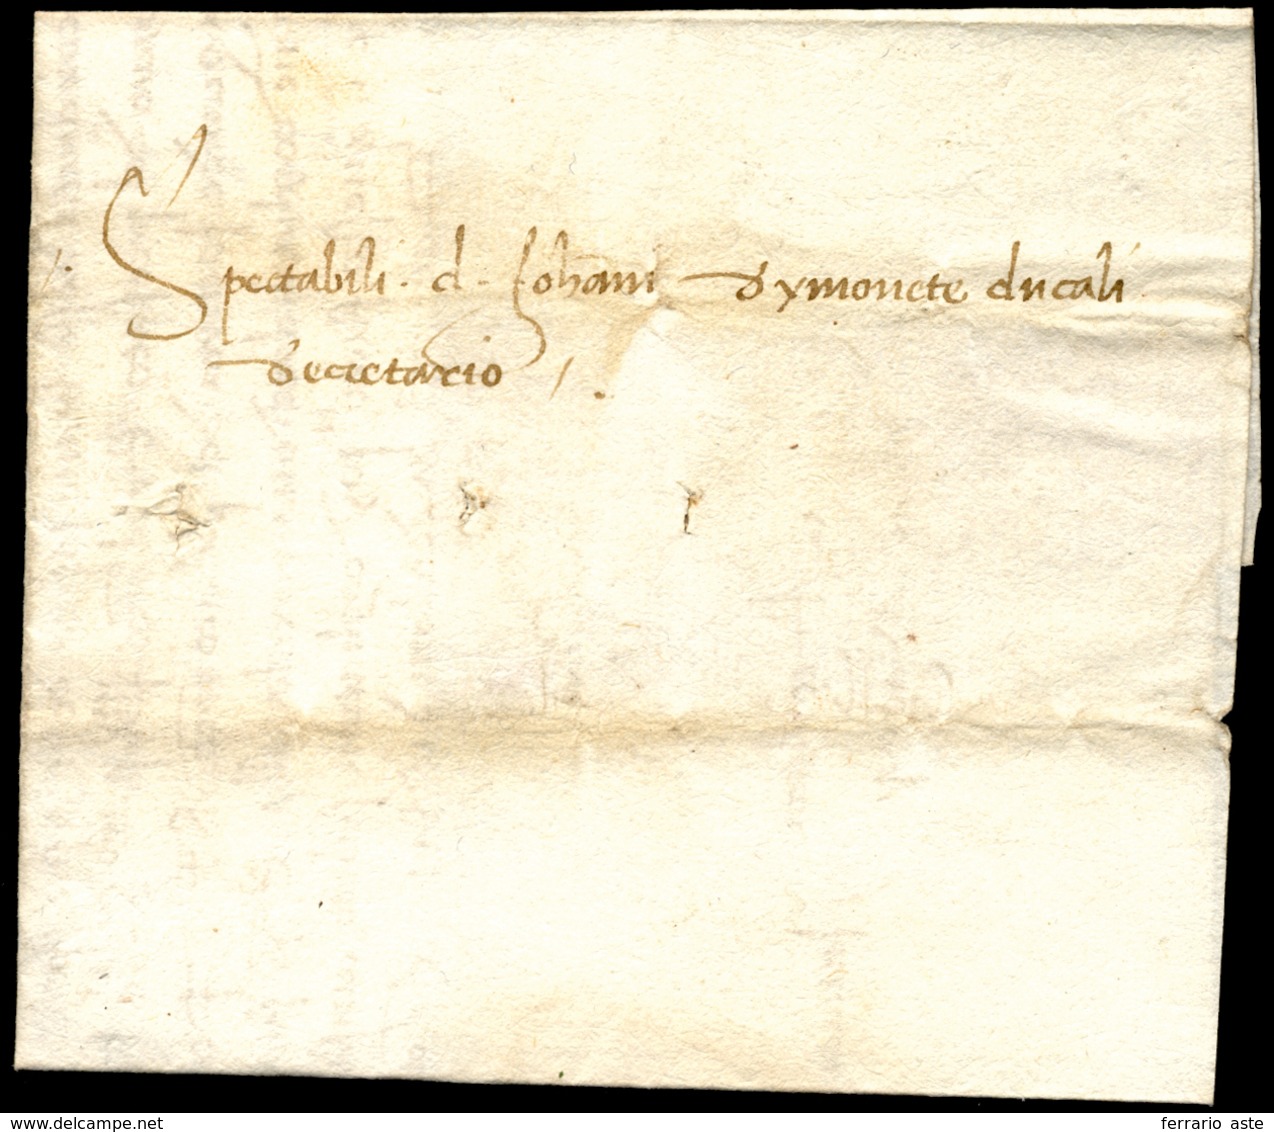 Spectabili . d . Johani Symonete ducali
Secretario /.
www.delcampe.net
ferrario aste